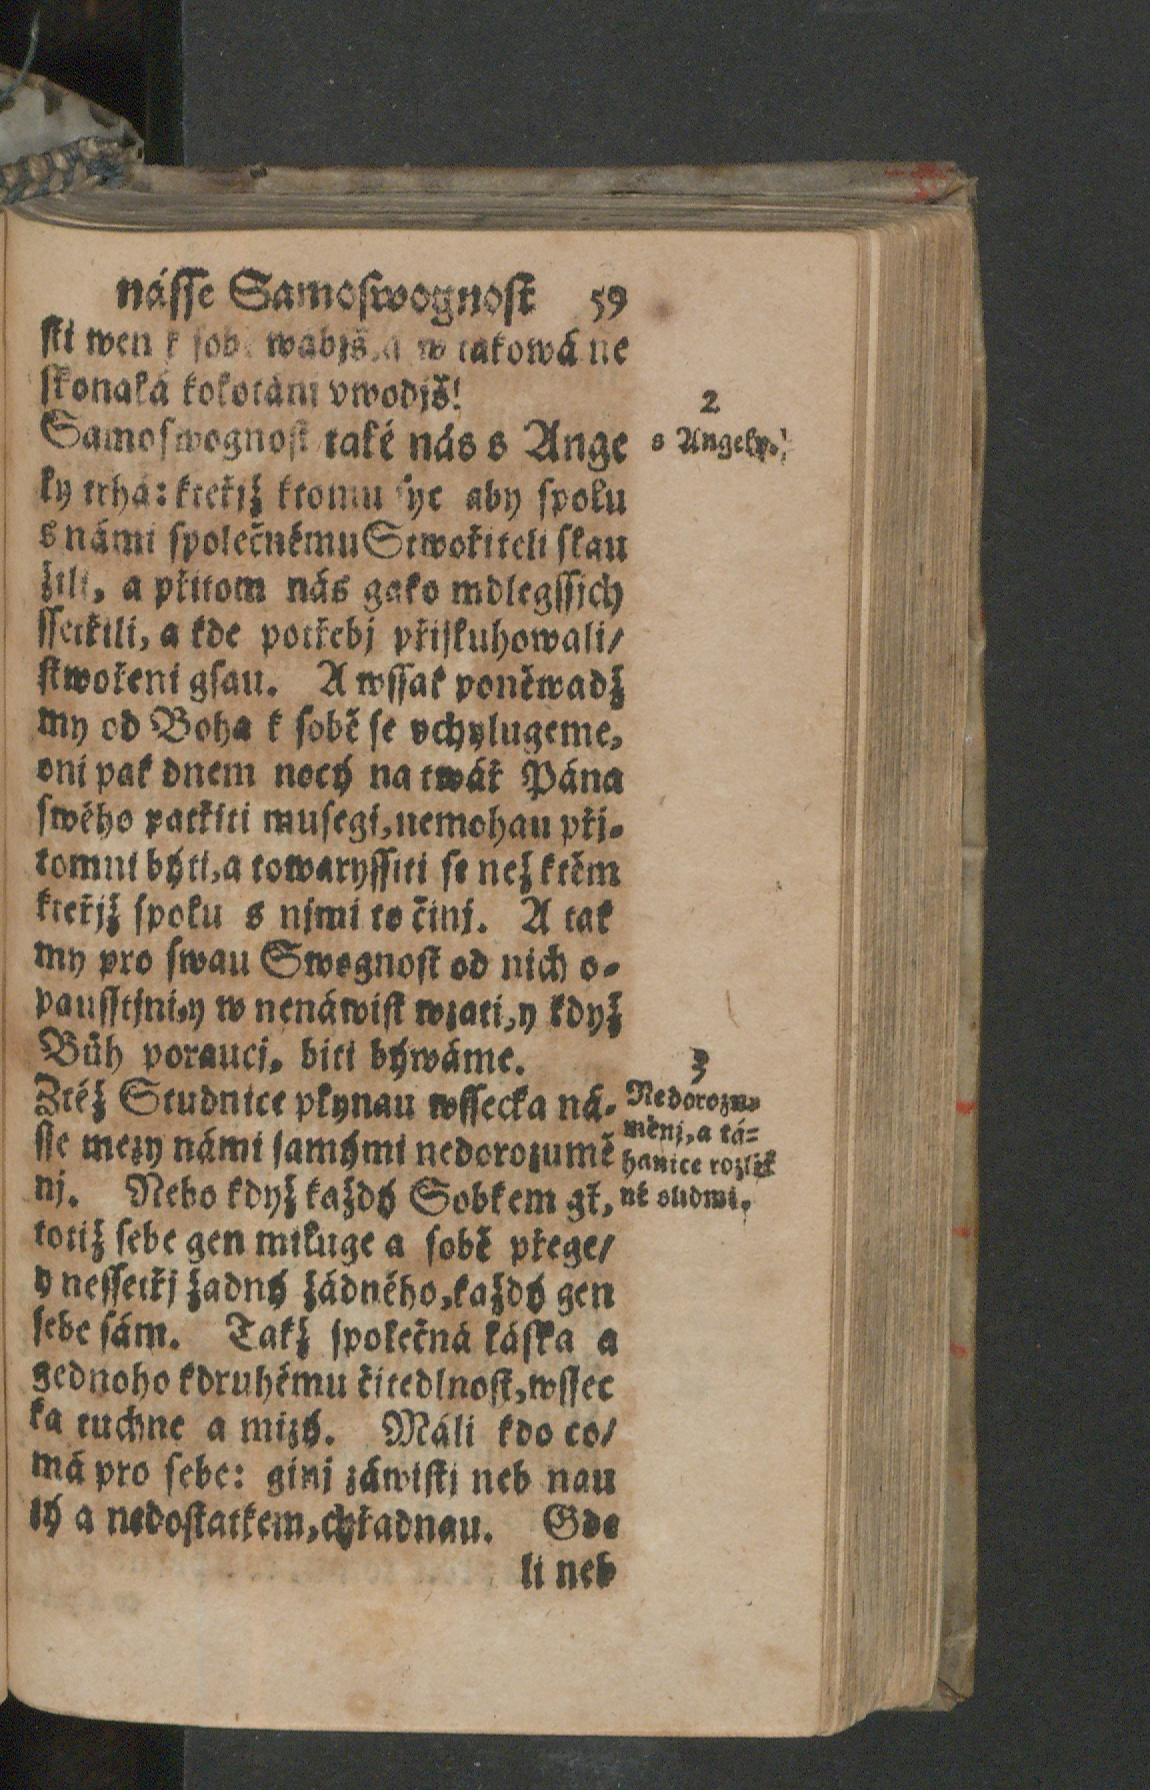 násse Samoswognost 59
sti wen k sobě wábjš, a w takowá ne
skonalá kolotánj vwodjš!
Samoswognost také nás s Ange
2
s Angely.
ly trhá: kteřjž ktomu syc aby spolu
s námi společnému Stwořiteli slau
žili, a přitom nás gako mdlegssjch
ssetřili, a kde potřebj přisluhowali/
stwořeni gsau. A wssak poněwadž
my od Boha k sobě se vchylugeme,
oni pak dnem nocý na twář Pána
swého patřiti musegj, nemohau přj-
tomni býti, a towaryssiti se než ktěm
kteřjž spolu s njmi to činj. A tak
my pro swau Swognost od nich o-
pausstjni, y w nenáwist wzati, y když
Bůh poraucj, biti býwáme.
Ztéž Studnice plynau wssecka ná-
sse mezy námi samými nedorozumě
nj. Nebo když každý Sobkem gť,
3
Nedorozu-
měnj, a tá-
hanice rozlič
né s lidmi.
totiž sebe gen miluge a sobě přege/
y nessetřj žadný žádného, každý gen
sebe sám. Takž společná láska a
gednoho kdruhému čitedlnost, wssec
ka tuchne a mizý. Máli kdo co/
má pro sebe: ginj záwistj neb nau
zý a nedostatkem, chřadnau. Gde
li neb